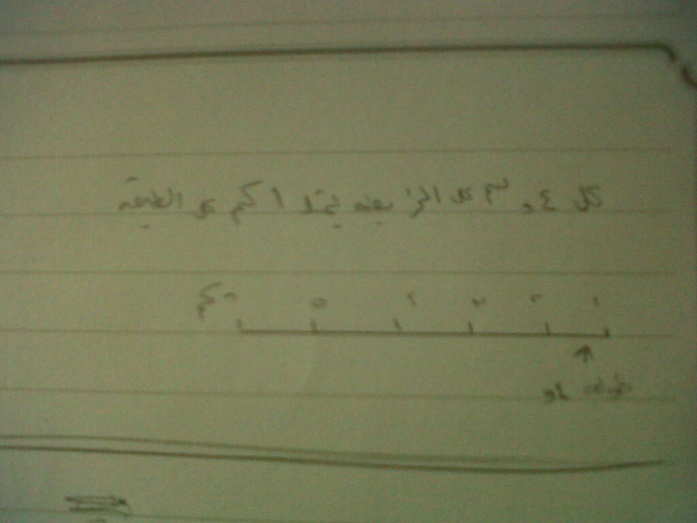 كل ٤, سم على الخريطه يمثل ١ كم على الطبيعه
١ ٢ ٣ ٤ ٥ ٦ كم